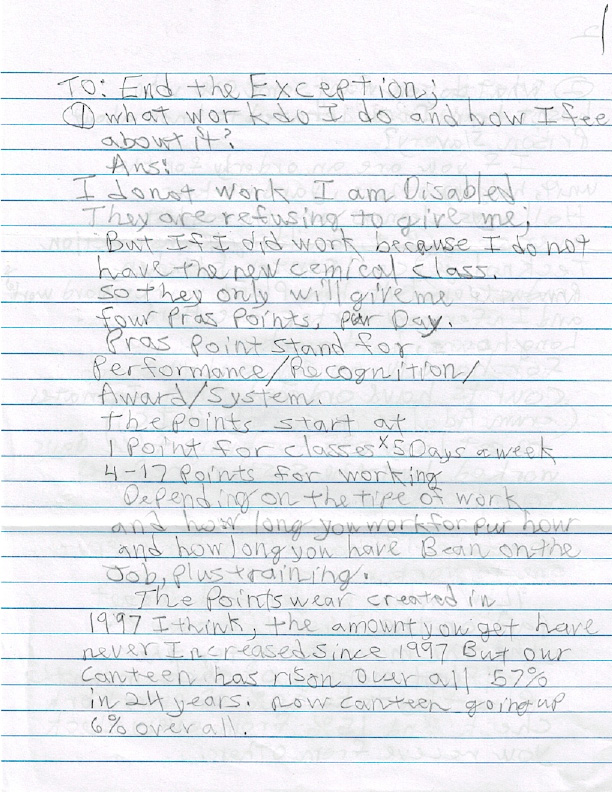 1
TO: End the Exception;
① what work do I do and how I fee
about it?
Ans:
I donot work I am Disabled
They are refusing to give me;
But If I did work because I do not
have the new cemical class.
so they only will give me
four Pras Points, per Day.
Pras Point stand for
Performance/Recognition/
Award/System.
the points start at
1 Point for classes x5 Days a week
4-17 Points for working
Depending on the tipe of work
and how long you work for pur hour
and how long you have Bean on the
Job, plus training.
The Points wear created in
1997 I think, the amount you get have
never Increased since 1997 But our
canteen has rison over all 57%
in 24 years. now canteen going up
6% over all.